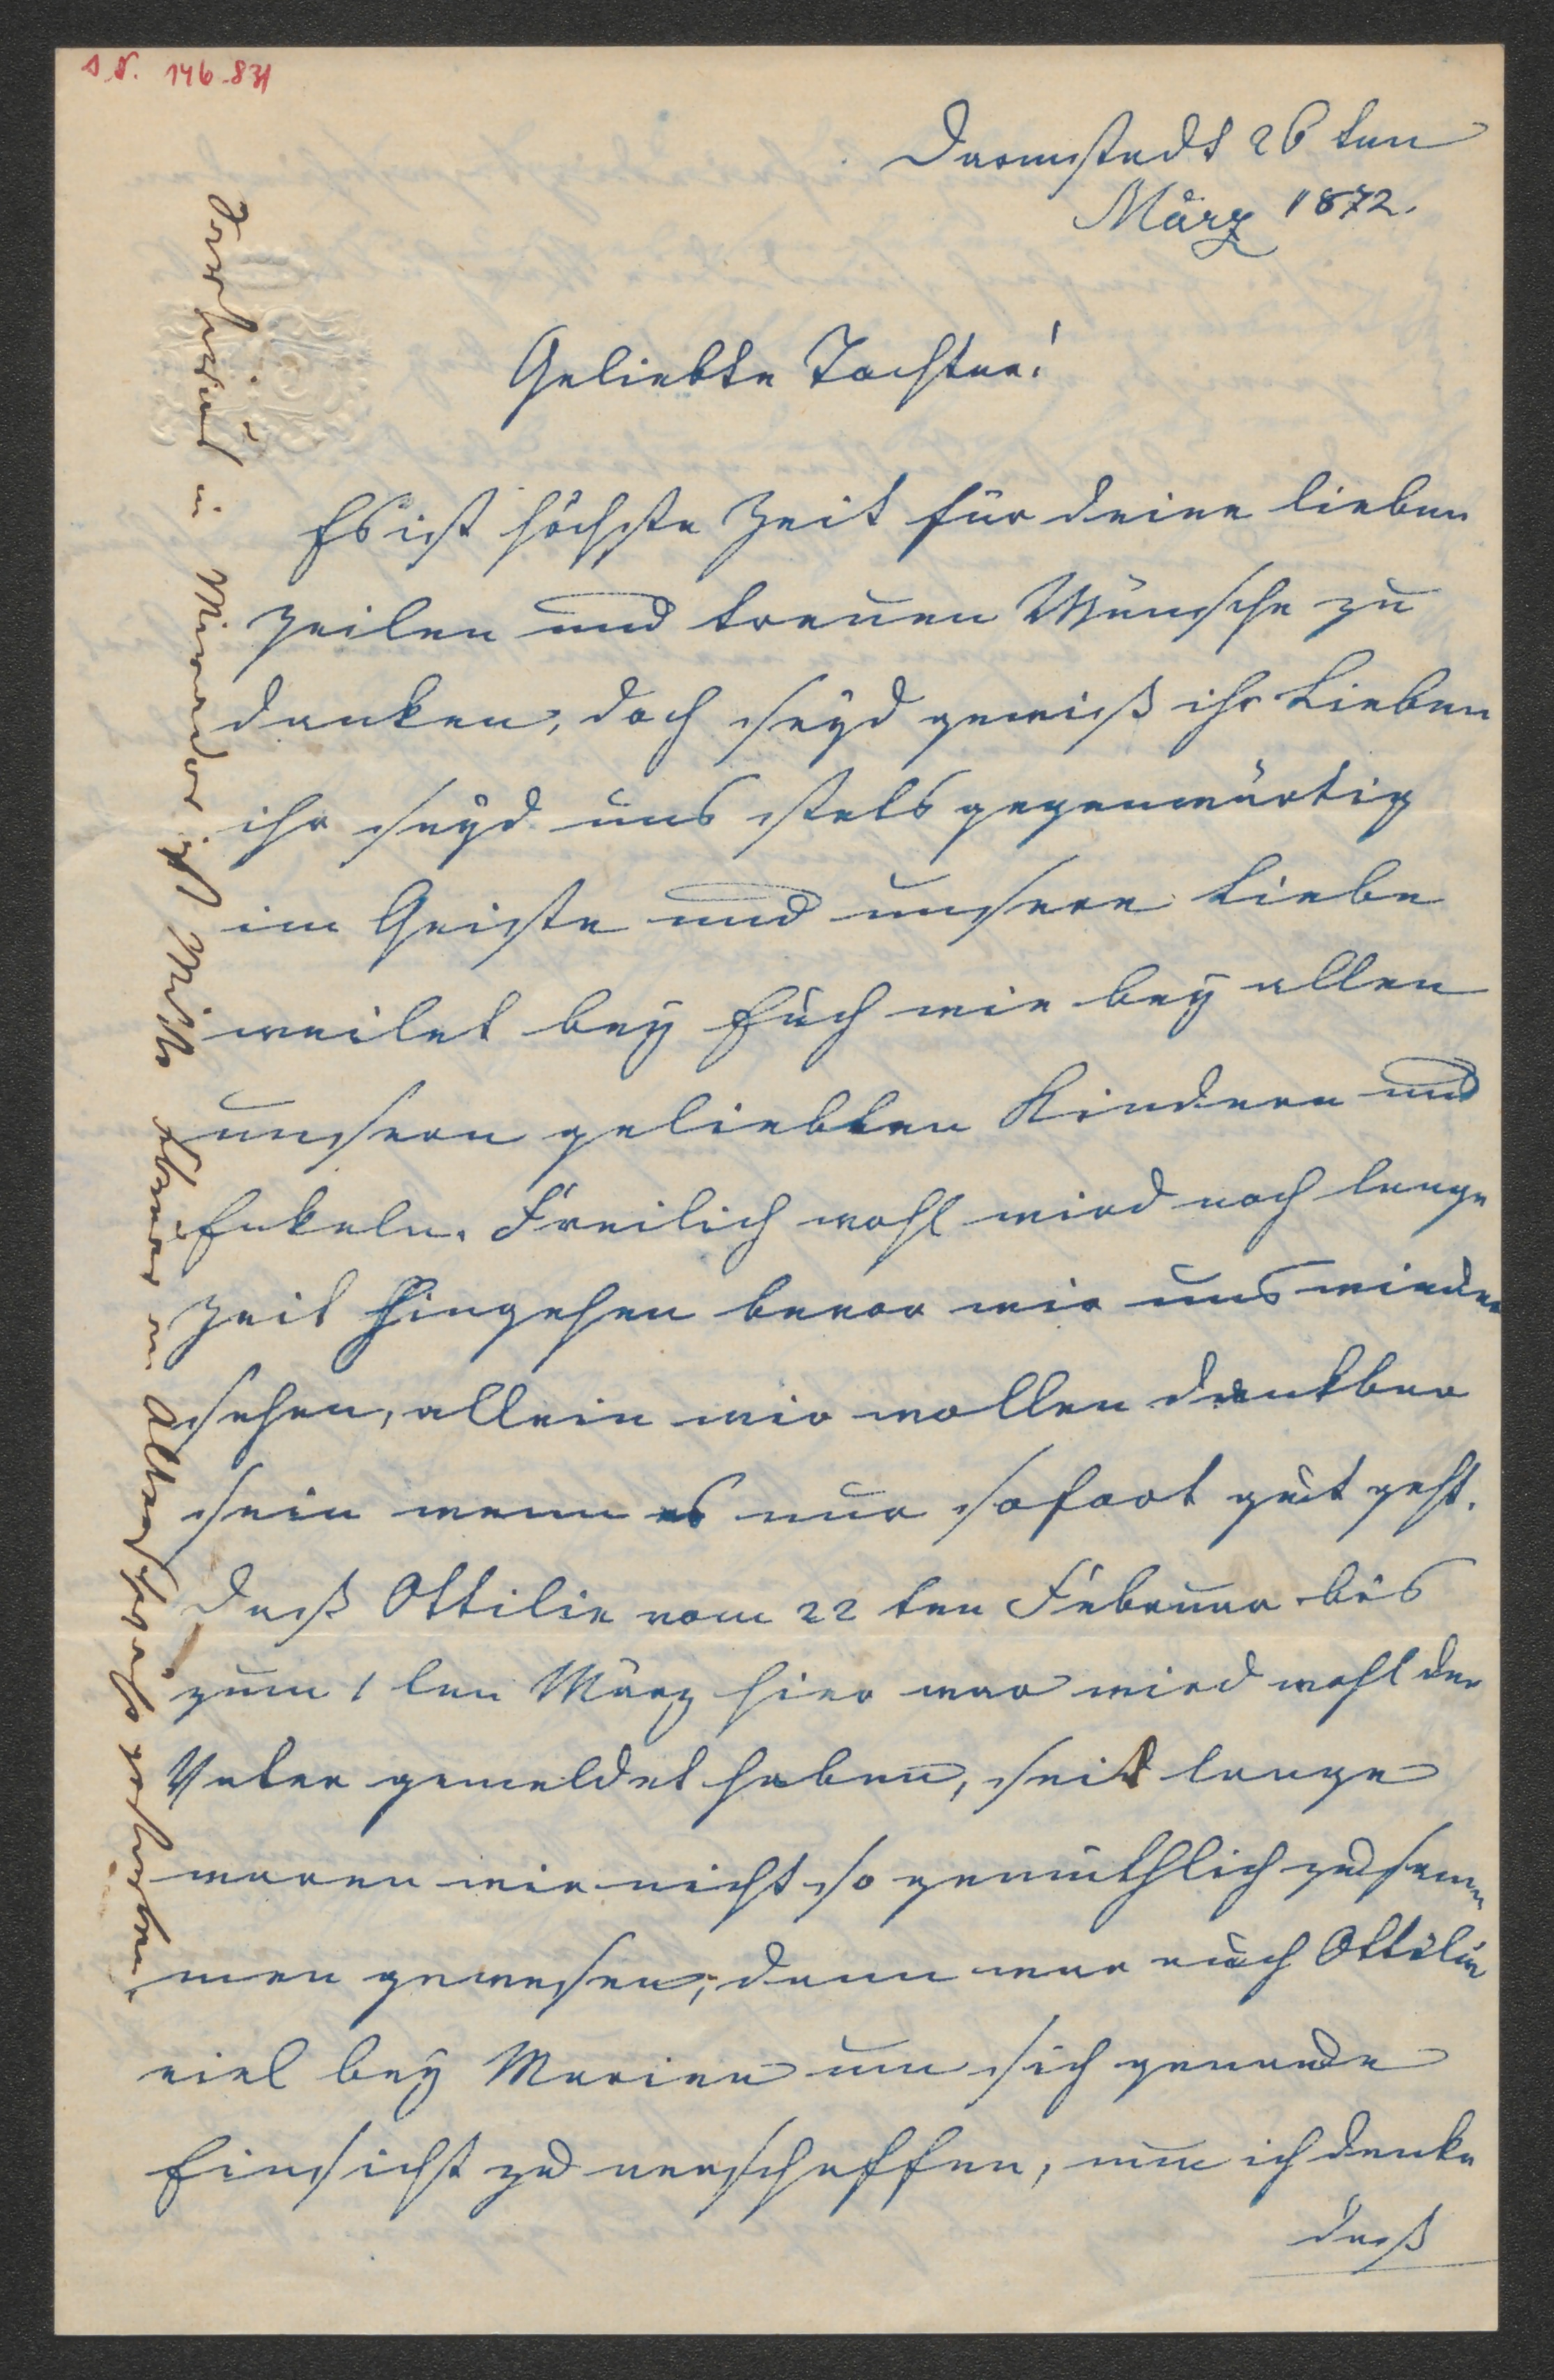 s. N. 146.831
Darmstadt 26 ten
März 1872.
Geliebte Tochter!
Es ist höchste Zeit für deine lieben
Zeilen und treuen Wünsche zu
danken, doch seyd gewiß ihr Lieben
ihr seyd uns stets gegenwärtig
im Geiste und unsere Liebe
weilet bey Euch wie bey allen
unsern geliebten Kindern und
Enkeln. Freilich wohl wird noch lange
Zeit hingehen bevor wir uns wieder
sehen, allein wir wollen dankbar
sein wenn es nur sofort gut geht.
Daß Ottilie vom 22 ten Februar bis
zum 1 ten März hier war wird wohl der
Vater gemeldet haben, seit lange
waren wir nicht so gemüthlich zusam
men gewesen; dann war auch Ottilie
viel bey Marien um sich gerade
Einsicht zu verschaffen, nun ich denke
daß
in ist an